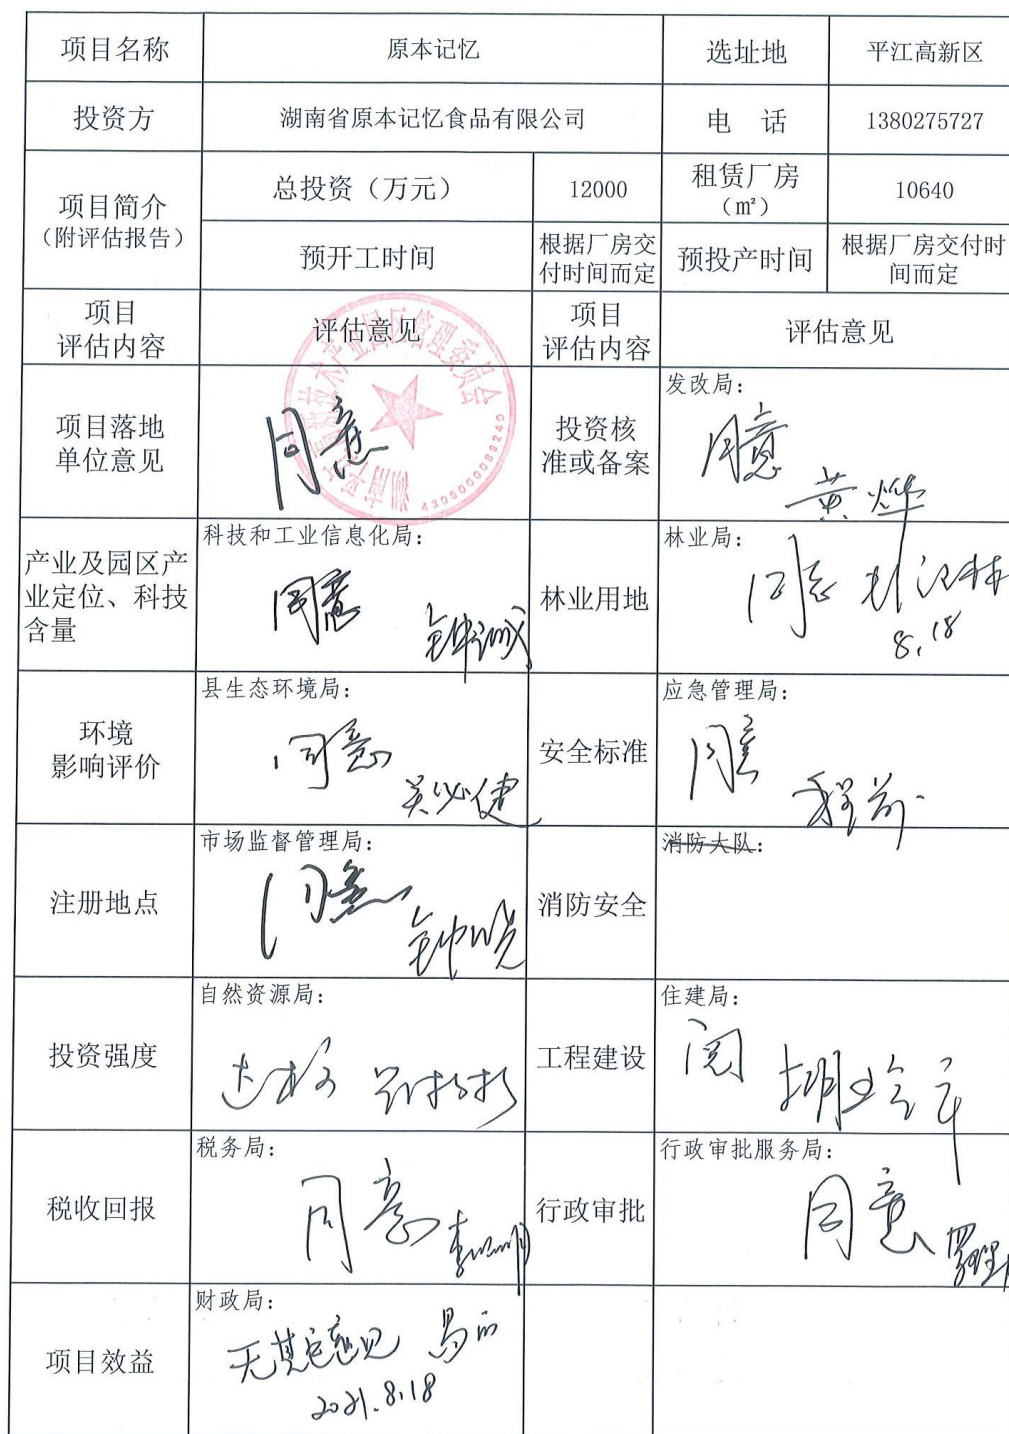 项目名称
原本记忆
选址地
平江高新区
投资方
湖南省原本记忆食品有限公司
电 话
1380275727
项目简介
（附评估报告）
总投资（万元）
12000
租赁厂房
（㎡）
10640
预开工时间
根据厂房交
付时间而定
预投产时间
根据厂房交付时
间而定
项目
评估内容
评估意见
项目
评估内容
评估意见
项目落地
单位意见
同意
4306000089240
投资核
准或备案
发改局：
同意
黄烨
产业及园区产
业定位、科技
含量
科技和工业信息化局：
同意
钟诚
林业用地
林业局：
同意
8.18
环境
影响评价
县生态环境局：
同意
吴必健
安全标准
应急管理局：
同意
注册地点
市场监督管理局：
同意
消防安全
消防大队：
投资强度
自然资源局：
工程建设
住建局：
阅
税收回报
税务局：
同意
行政审批
行政审批服务局：
同意
项目效益
财政局：
无其它意见
2021.8.18